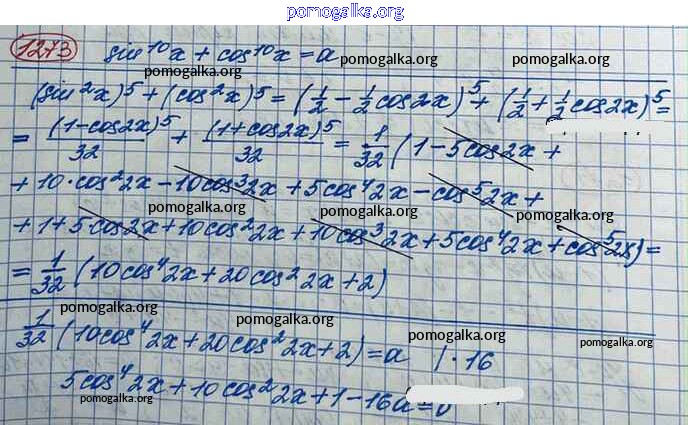 pomogalka.org
1273 sin¹⁰x + cos¹⁰x = a pomogalka.org pomogalka.org
pomogalka.org
(sin²x)⁵ + (cos²x)⁵ = (1/2 - 1/2 cos2x)⁵ + (1/2 + 1/2 cos2x)⁵ =
= (1-cos2x)⁵/32 + (1+cos2x)⁵/32 = 1/32 (1 - 5cos2x +
+ 10·cos²2x - 10cos³2x + 5cos⁴2x - cos⁵2x +
pomogalka.org pomogalka.org pomogalka.org
+ 1 + 5cos2x + 10cos²2x + 10cos³2x + 5cos⁴2x + cos⁵2x) =
= 1/32 (10cos⁴2x + 20cos²2x + 2)
pomogalka.org pomogalka.org pomogalka.org
1/32 (10cos⁴2x + 20cos²2x + 2) = a | · 16
pomogalka.org
5cos⁴2x + 10cos²2x + 1 - 16a = 0
pomogalka.org pomogalka.org